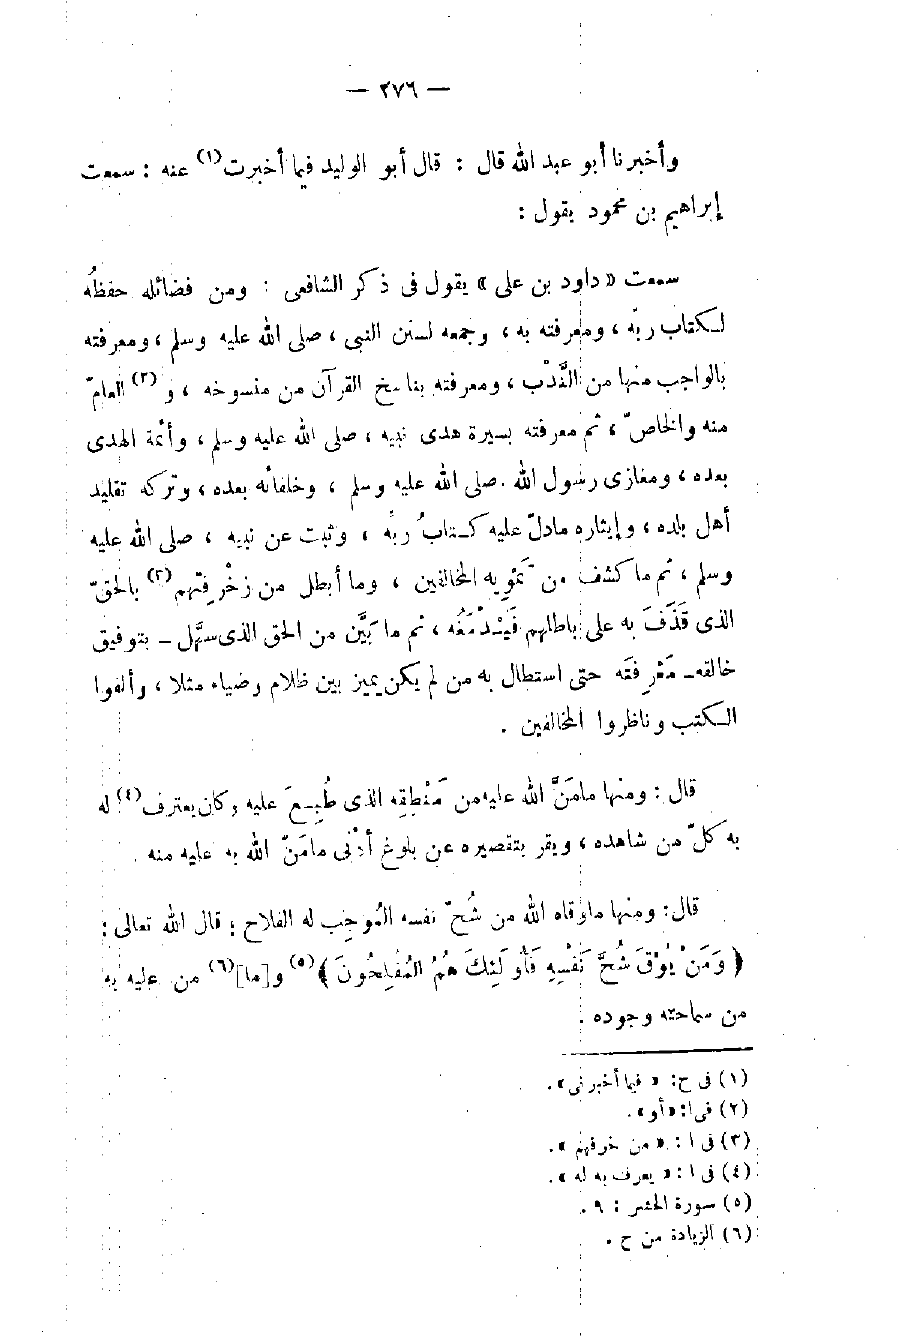 — ٢٧٦ —
وأخبرنا أبو عبد الله قال : قال أبو الوليد فيما أخبرت(١) عنه : سمعت
إبراهيم بن محمود يقول :
سمعت « داود بن على » يقول فى ذكر الشافعى : ومن فضائله حفظُه
لكتاب ربّه ، ومعرفته به ، وجمعه لسنن النبى ، صلى الله عليه وسلم ، ومعرفته
بالواجب منها من النَّدْب ، ومعرفته بناسخ القرآن من منسوخه ، و(٢) العامّ
منه والخاصّ ، ثم معرفته بسيرة هدى نبيه ، صلى الله عليه وسلم ، وأئمة الهدى
بعده ، ومغازى رسول الله صلى الله عليه وسلم ، وخلفائه بعده ، وتركه تقليد
أهل بلده ، وإيثاره مادلّ عليه كتابُ ربِّه ، وثبت عن نبيه ، صلى الله عليه
وسلم ، ثم ما كشف من تَمْويه المخالفين ، وما أبطل من زخْرفتهم(٣) بالحقّ
الذى قَذَفَ به على باطلهم فَيَدْمَغُه ، ثم ما بَيَّن من الحق الذى سهَّل – بتوفيق
خالقه – مَعْرِفتَه حتى استطال به من لم يكن يميز بين ظلام وضياء مثلا ، وألفوا
الكتب وناظروا المخالفين .
قال : ومنها مامَنَّ الله عليه من مَنْطِقِه الذى طُبِعَ عليه وكان يعترف(٤) له
به كلّ من شاهده ، ويقر بتقصيره عن بلوغ أدْنى مامَنّ الله به عليه منه .
قال : ومنها ماوقاه الله من شُحّ نفسه المُوجِب له الفلاح ؛ قال الله تعالى :
﴿ وَمَنْ يُوقَ شُحَّ نَفْسِهِ فَأُولَئِكَ هُمُ المُفْلِحُونَ ﴾(٥) و[ما](٦) من عليه به
من سماحته وجوده .
(١) فى ح : « فيما أخبرنى » .
(٢) فى ا : « أو » .
(٣) فى ا : « من خرفهم » .
(٤) فى ا : « يعرف به له » .
(٥) سورة الحشر : ٩ .
(٦) الزيادة من ح .